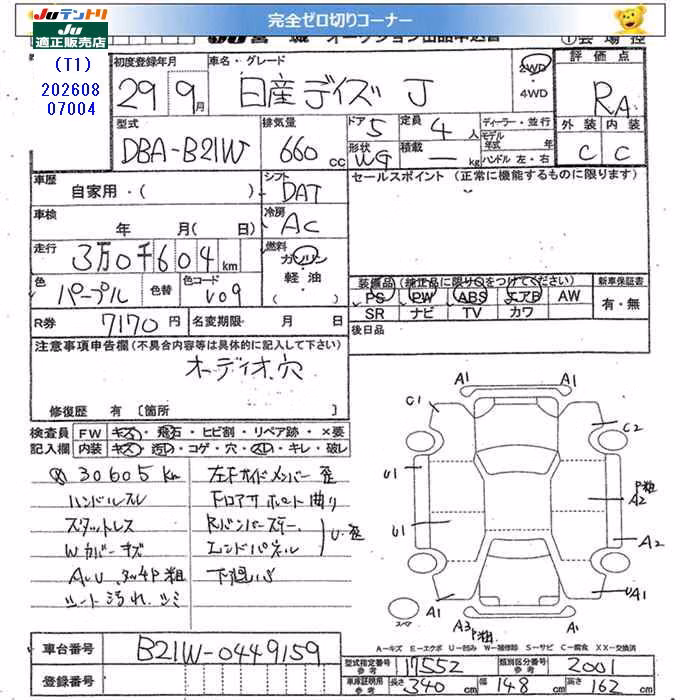 JUテントリ
JU適正販売店
完全ゼロ切りコーナー
(T1)
202608
07004
初度登録年月
29年9月
車名・グレード
日産デイズ J
2WD
・
4WD
評価点
RA
外装 内装
C C
型式
DBA-B21W
排気量
660cc
ドア
5
形状
WG
定員
4人
積載
—kg
ディーラー・並行
モデル年式 年
ハンドル 左・右
車歴
自家用・( )
シフト
DAT
車検
年 月( 日)
冷房
AC
走行
3万0千604km
燃料
ガソリン
軽油
( )
色
パープル
色替
色コード
V09
R券 7170円 名変期限 月 日
セールスポイント (正常に機能するものに限ります)
装備品(純正品に限り○をつけてください)
PS PW ABS エアB AW
SR ナビ TV カワ
新車保証書
有・無
後日品
注意事項申告欄(不具合内容等は具体的に記入して下さい)
オーディオ穴
修復歴 有 [箇所 ]
検査員記入欄
FW キズ・飛石・ヒビ割・リペア跡・×要
内装 キズ・汚れ・コゲ・穴・スレ・キレ・破レ
30605km
ハンドルスレ
スタットレス
Wカバーキズ
シート汚れ、シミ
左Fサイドメンバー歪
Fロアサポート曲り
Rバンパーステー、
エンドパネル
U・歪
A1 A1
C1
C2
U1
U1
P粗
A2
A2
A1
UA1
A3 P粗
A1
スペア
A-キズ E-エクボ U-凹み W-補修跡 S-サビ C-腐食 XX-交換済
車台番号 B21W-0449159
登録番号
型式指定番号
参考
17552
類別区分番号
参考
2001
車庫証明用
参考
長さ 340cm 幅 148cm 高さ 162cm